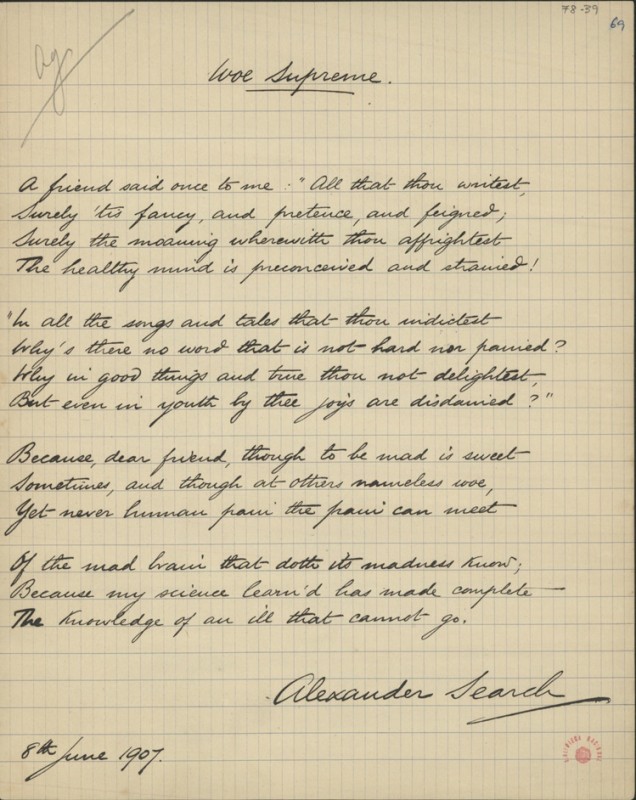 78-39
69
Woe Supreme.
A friend said once to me: "All that thou writest,
Surely 'tis fancy, and pretence, and feigned;
Surely the moaning wherewith thou affrightest
The healthy mind is preconceived and strained!
"In all the songs and tales that thou indictest
Why's there no word that is not hard nor pained?
Why in good things and true thou not delightest,
But even in youth by thee joys are disdained?"
Because, dear friend, though to be mad is sweet
Sometimes, and though at others nameless woe,
Yet never human pain the pain can meet
Of the mad brain that doth its madness know;
Because my science learn'd has made complete
The knowledge of an ill that cannot go.
Alexander Search
8th June 1907.